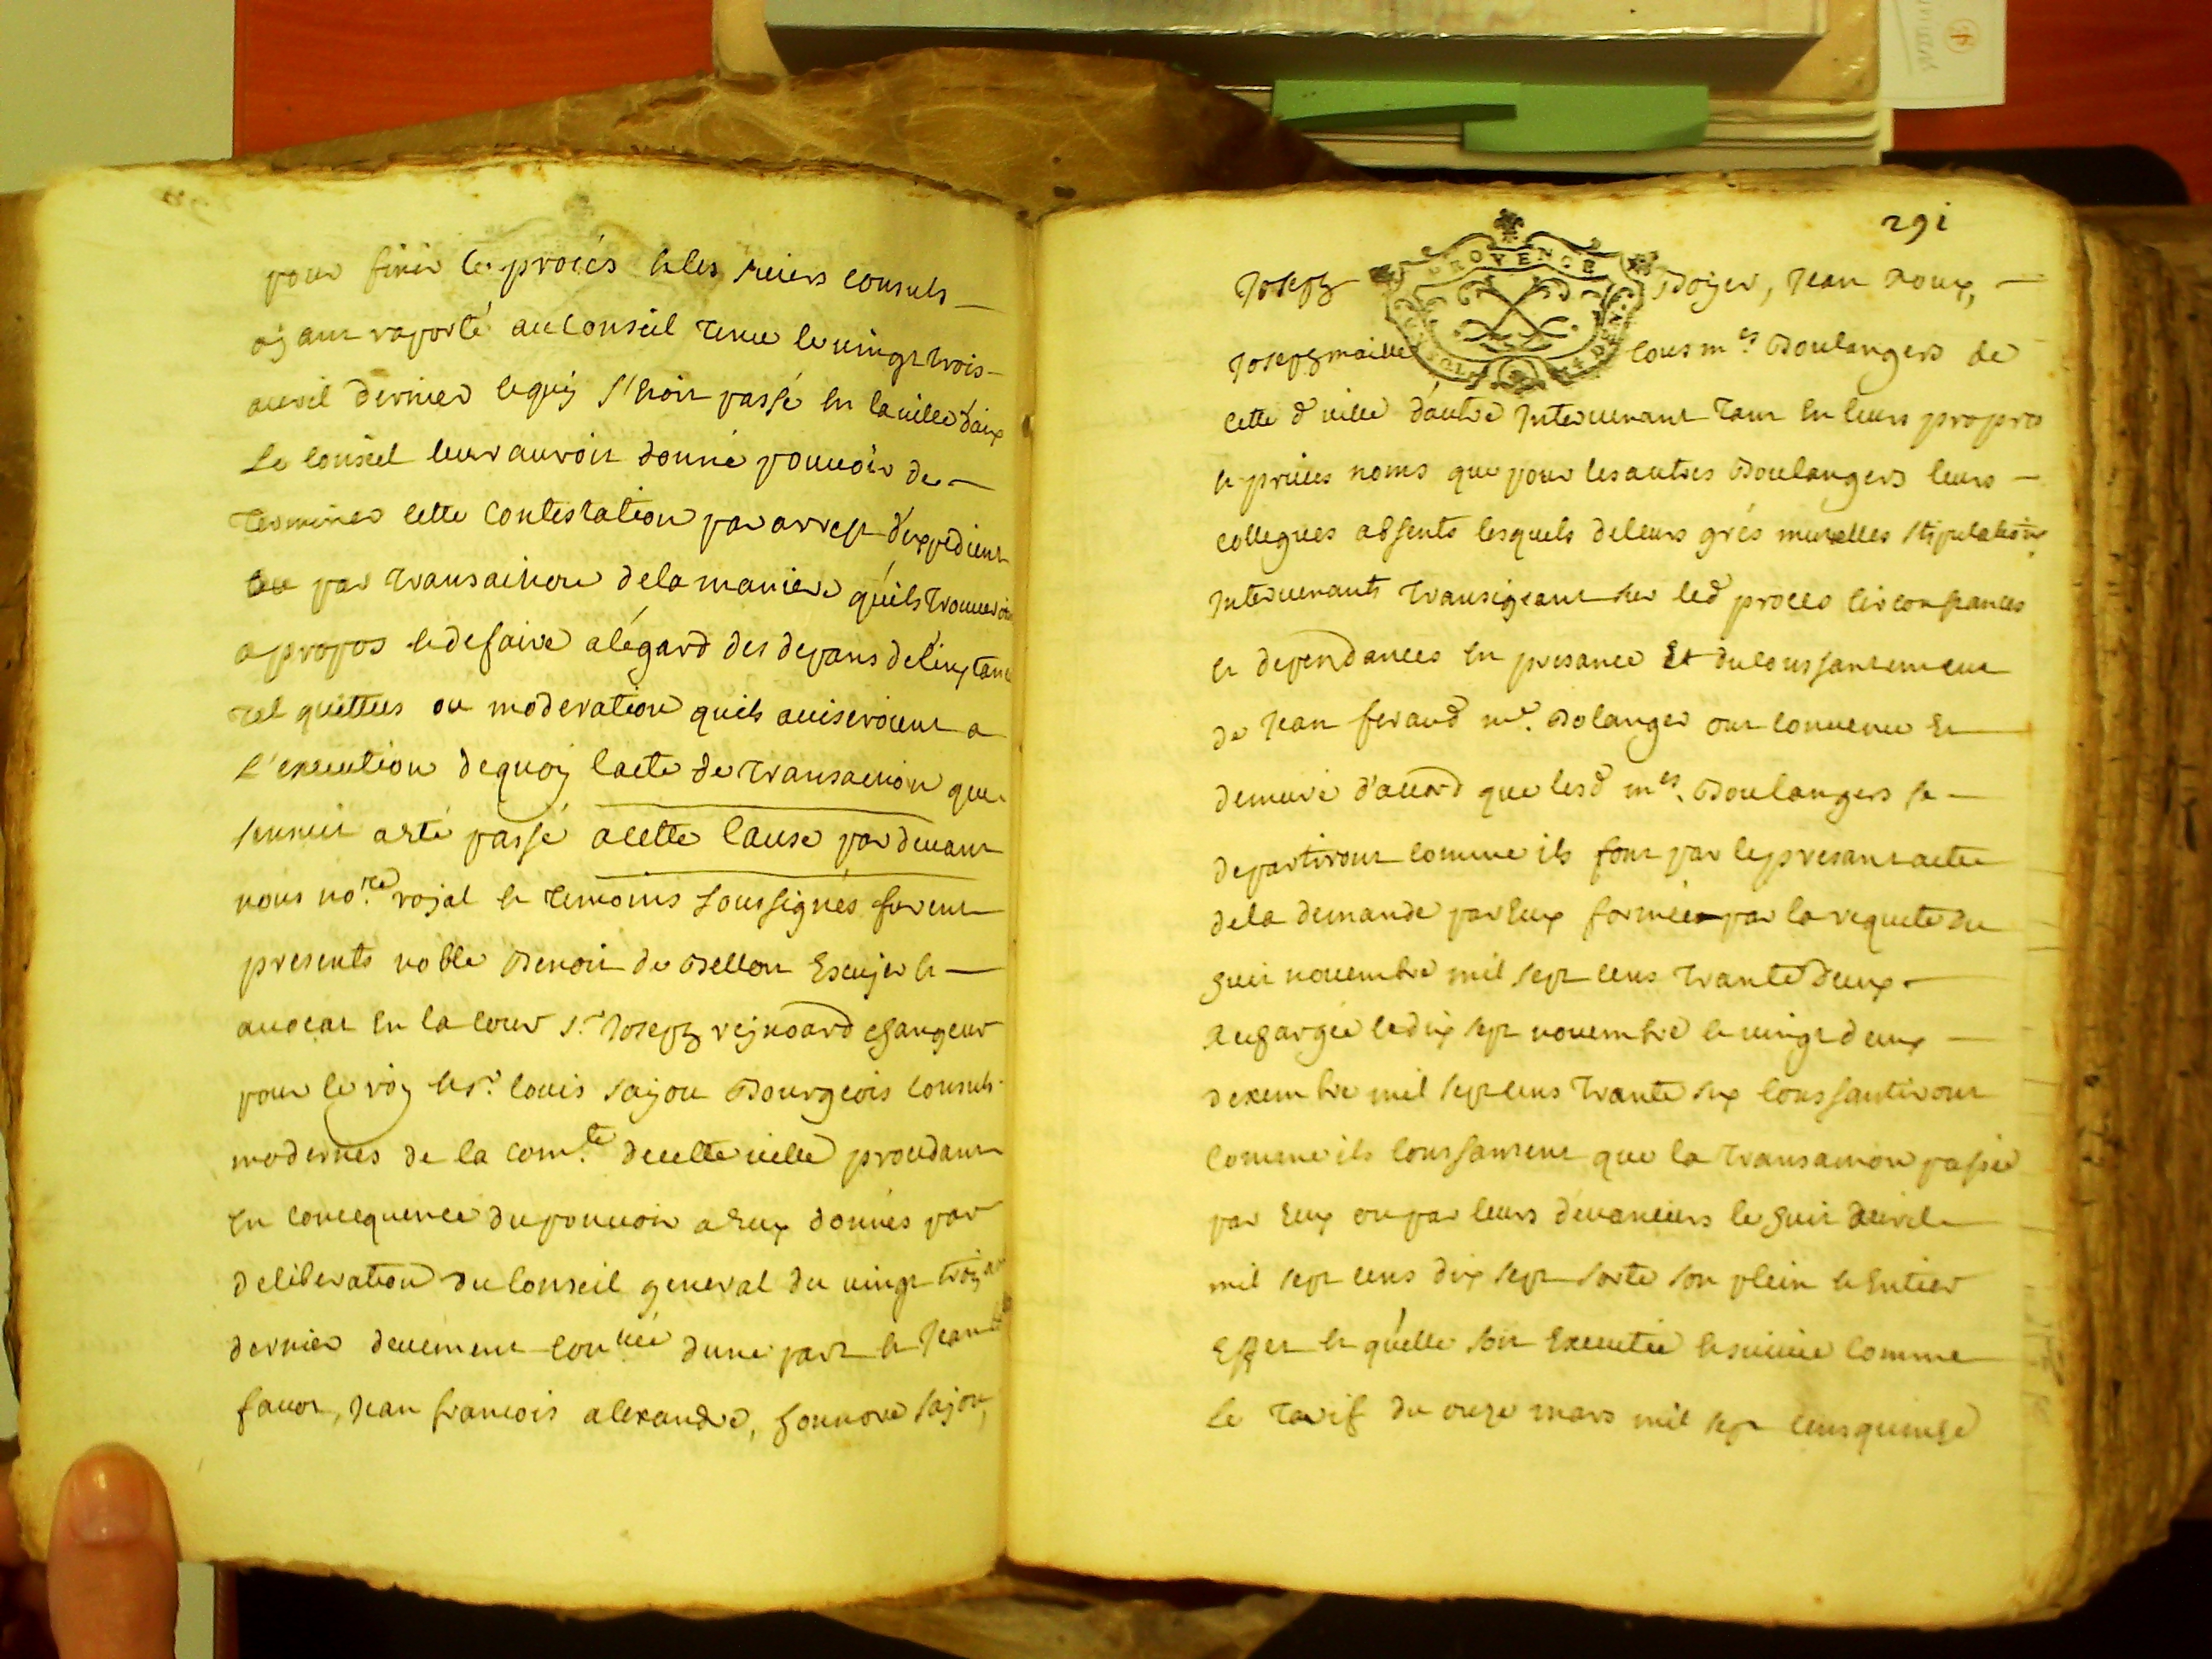 pour finir le procés & les sieurs consuls
ayant raporté au Conseil tenu le vingt trois
avril dernier ce quy s'étoit passé en la ville d'aix
Le conseil leur auroit donné pouvoir de
terminer cette Contestation par arrest d'expedient
ou par transaction de la maniere qu'ils trouveroint
a propos & de faire a légard des depans de l'instance
tel quittus ou moderation quils aviseroient a
L'execution de quoy l'acte de transaction que
sensuit a été passé a cette Cause par devant
nous no.re royal & temoins soussignés furent
presents noble Benoit de Bellon Escuyer &
avocat en la cour s.r Joseph reynoard changeur
pour le roy & s.r louis sajou Bourgeois Consuls
modernes de la com.te de cette ville procedant
en concequence du pouvoir a Eux donnés par
deliberation du Conseil general du vingt trois av
dernier deuement con.llée dune part & Jean
favor, Jean francois alexandre, honnore sajou,
291
PROVENCE
Joseph Boyer, Jean Roux,
Joseph maille tous m.es Boulangers de
cette d. ville d'autre Intervenant tant en leurs propres
& privés noms que pour les autres Boulangers leurs
collegues absents lesquels de leurs grés mutuelles stipulations
Intervenants transigeant sur led procés circonstances
et dependances en presance Et du conssantement
de Jean feraud m.e Bolanger ont convenu Et
demuré d'accord que lesd m.es Boulangers se
departiront comme ils font par le presant acte
de la demande par Eux formée par la requete du
huit novembre mil sept cens trante deux
Rechargée le dix sept novembre & vingt deux
dexembre mil sept cens trante six conssantiront
comme ils conssantent que la transaction passée
par Eux ou par leurs dévanciers le huit avril
mil sept cens dix sept sorte son plein & Entier
Effet & qu'elle soit Executée & suivie comme
Le tarif du onze mars mil sept cens quinze